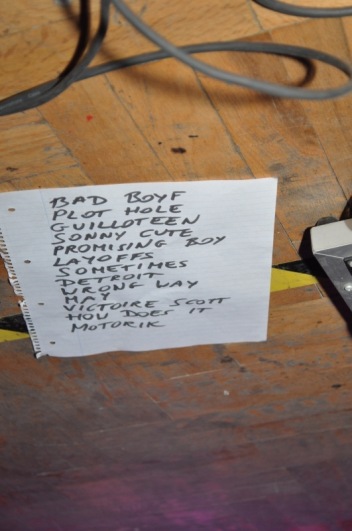 BAD BOYF
PLOT HOLE
GUILLOTEEN
SONNY CUTE
PROMISING BOY
LAYOFFS
SOMETIMES
DETROIT
WRONG WAY
MAY
VICTOIRE SCOTT
HOW DOES IT
MOTORIK